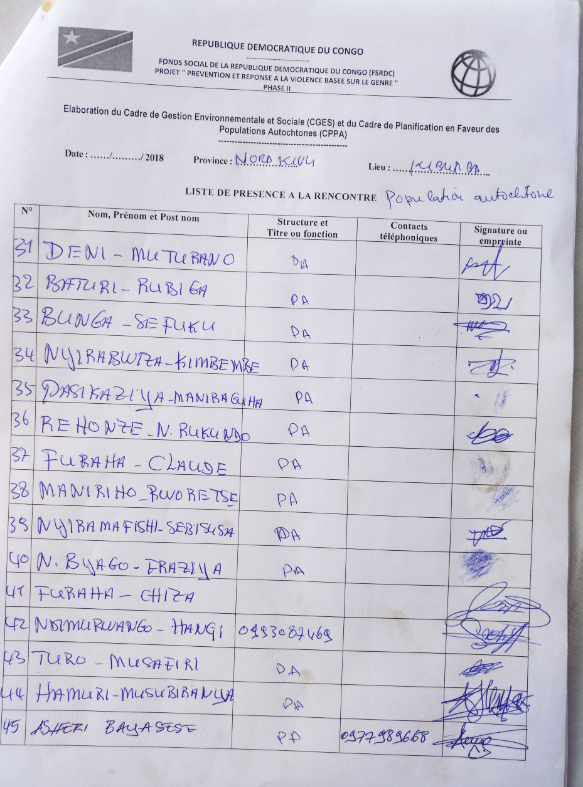 REPUBLIQUE DEMOCRATIQUE DU CONGO
FONDS SOCIAL DE LA REPUBLIQUE DEMOCRATIQUE DU CONGO (FSRDC)
PROJET " PREVENTION ET REPONSE A LA VIOLENCE BASEE SUR LE GENRE "
PHASE II
Elaboration du Cadre de Gestion Environnementale et Sociale (CGES) et du Cadre de Planification en Faveur des
Populations Autochtones (CPPA)
Date : ....../........./ 2018 Province : NORD KIVU Lieu :
LISTE DE PRESENCE A LA RENCONTRE Population autochtone
N° Nom, Prénom et Post nom Structure et Titre ou fonction Contacts téléphoniques Signature ou empreinte
31 DENI - MUTUBANO PA
32 BATURI - RUBIGA PA
33 BUNGA - SEFUKU PA
34 NYIRABWIZA - KIMBEMBE PA
35 DASIKAZIYA - MANIRAGUHA PA
36 REHONZE - N. RUKUNDO PA
37 FURAHA - CLAUDE PA
38 MANIRIHO - RWORETSE PA
39 NYIRAMAFISHI - SEBISUSA PA
40 N. BYAGO - ERAZIYA PA
41 FURAHA - CHIZA
42 - HANGI 0993087469
43 TURO - MUSAFIRI PA
44 HAMURI - MUSUBIRANYA PA
45 ASHERI BAYASESE PA 0977989668